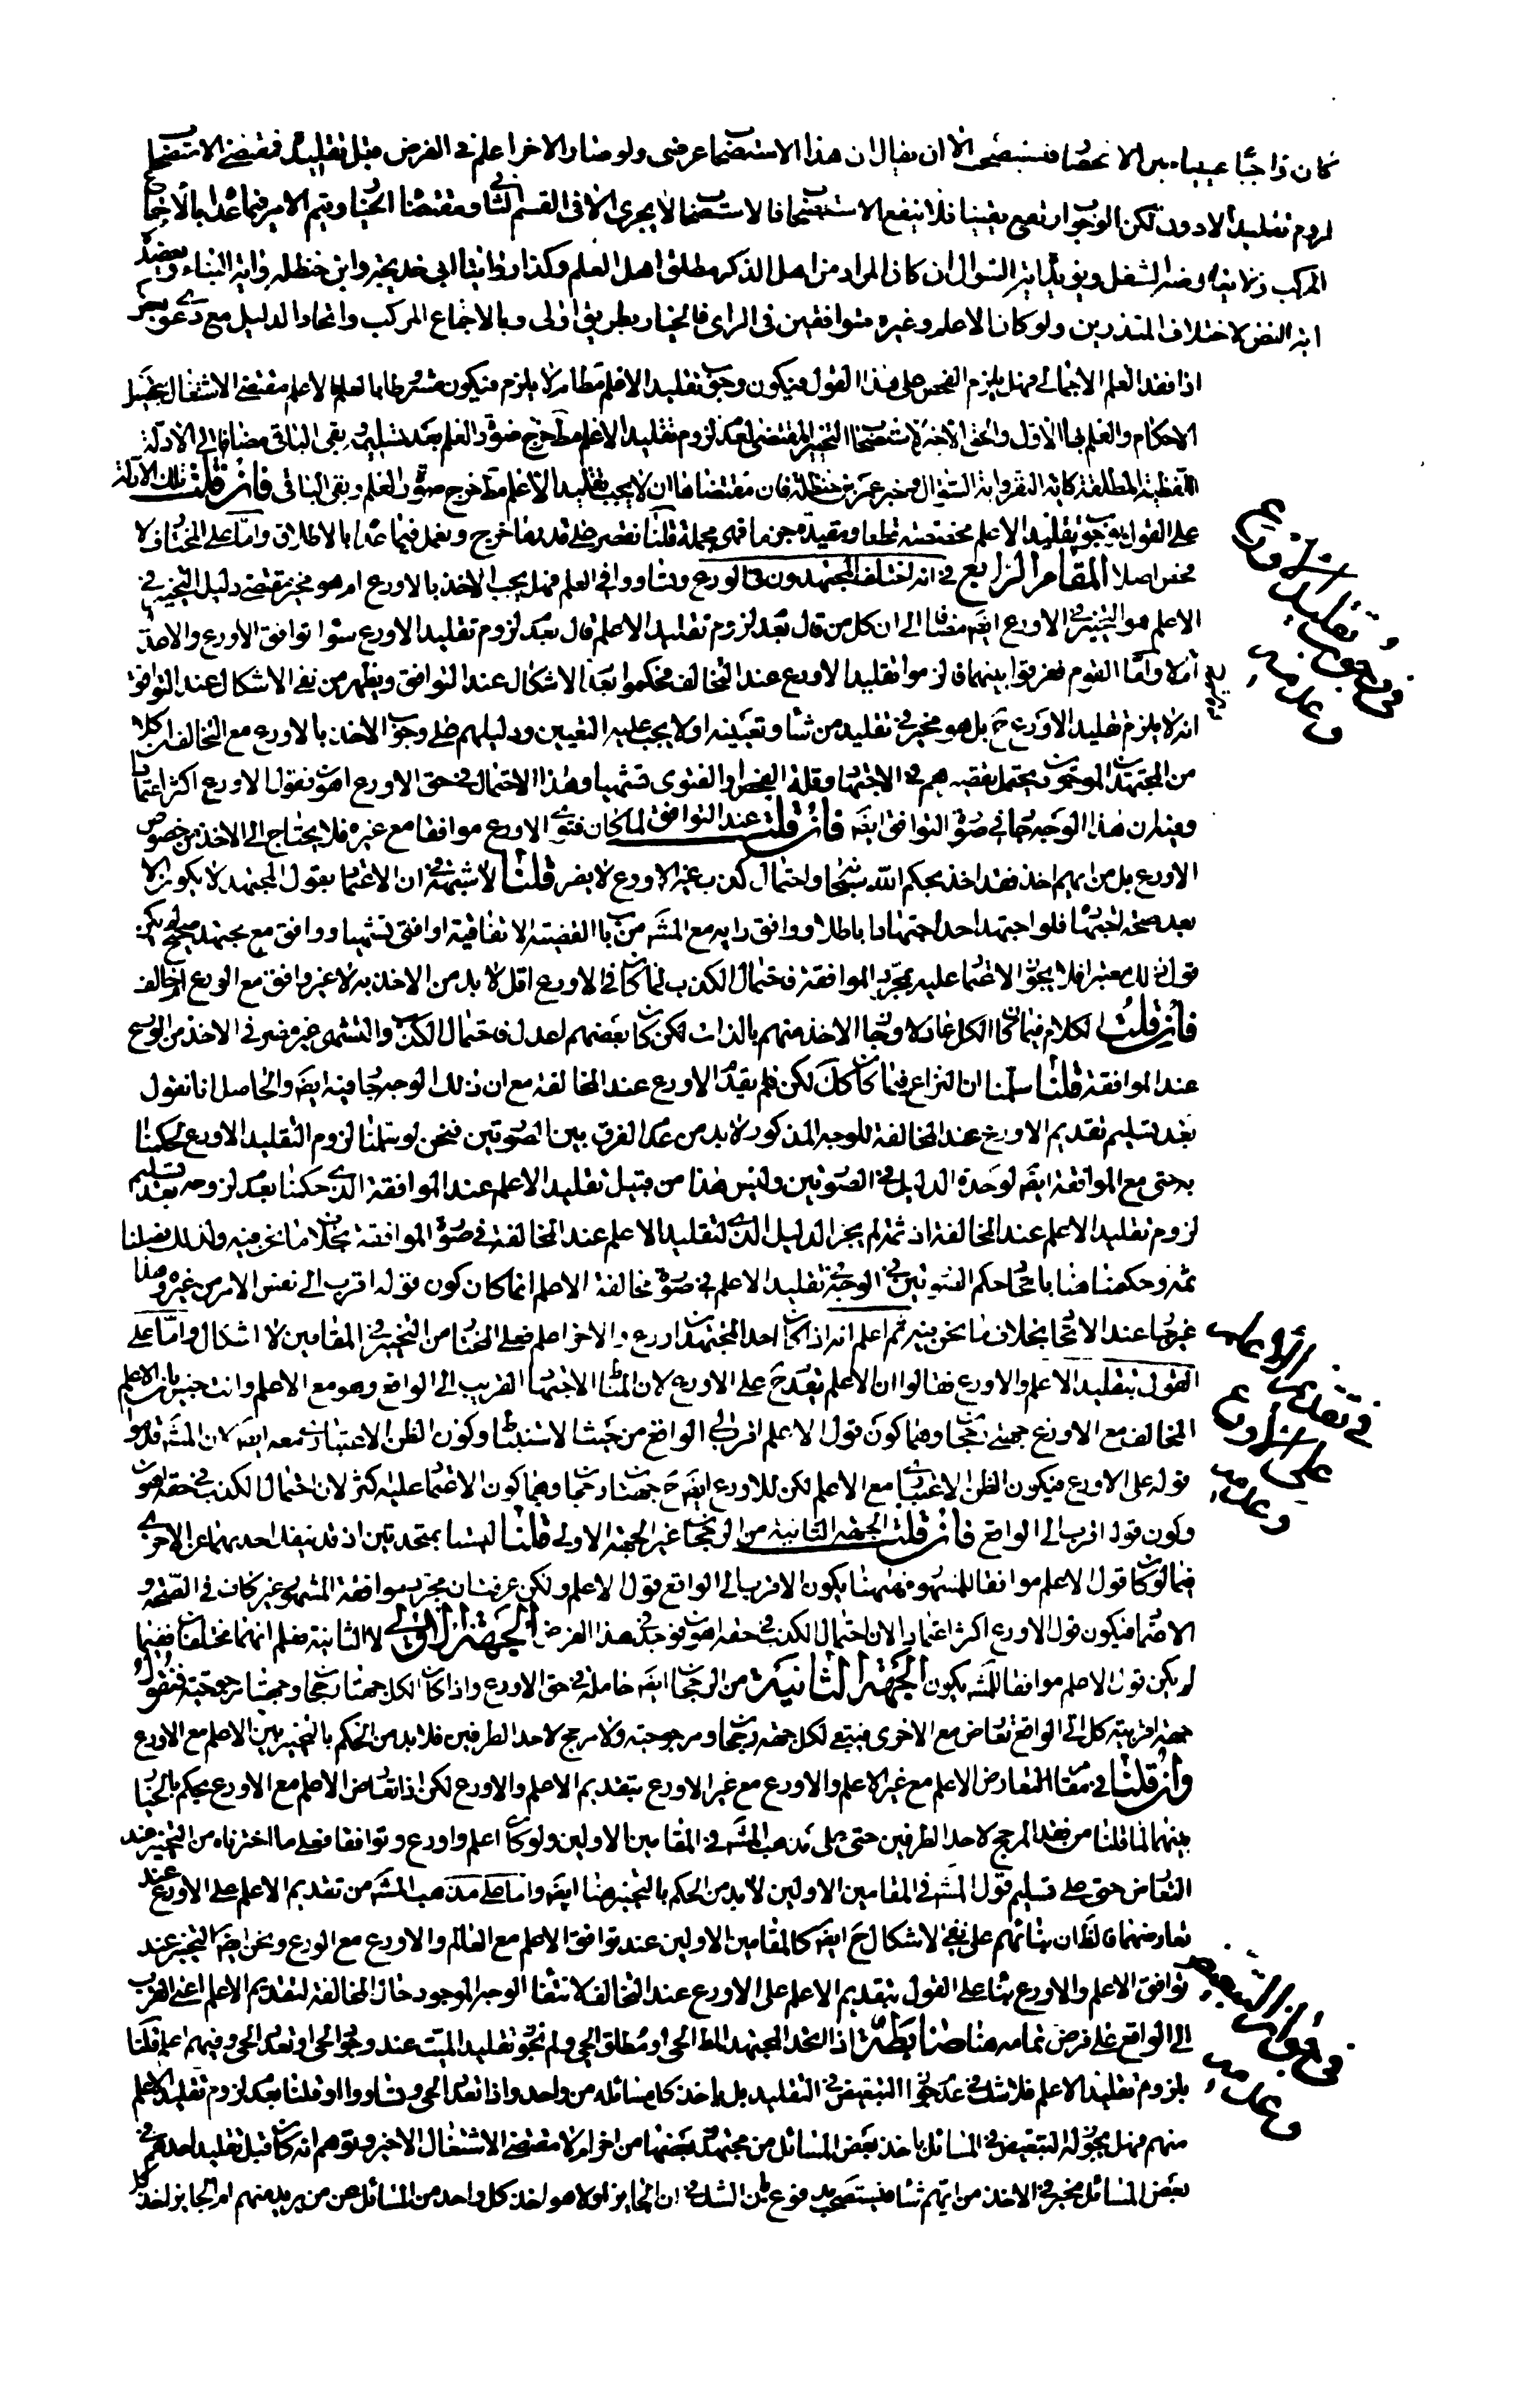 كان واجبا عينيا من الانحصار فيستصحب الا ان يقال ان هذا الاستصحاب عرضى ولو صار الاخر اعلم فى الفرض قبل تقليده فمقتضى الاستصحاب
لزوم تقليد الادون لكن الوجوب ارتفع يقينا فلا ينفع الاستصحاب فالاستصحاب لا يجرى الا فى القسم الثانى ومقتضاه الخيار ويتم الامر فيما عداه بالاجماع
المركب ويؤيده اية السؤال ان كان المراد من اهل الذكر مطلق اهل العلم وكذا روايتا ابى خديجة وابن حنظلة واية النبأ ويعضده
اية النفر لاختلاف المنذرين ولو كان الاعلم وغيره متوافقين فى الراى فالخيار بطريق اولى وبالاجماع المركب واتحاد الدليل مع
اذا فقد العلم الاجمالى فهل يلزم الفحص على هذا القول فيكون وجوب تقليد الاعلم مطلقا ام لا يلزم فيكون مشروطا بالعلم بالاعلم مقتضى الاشتغال بتحصيل
الاحكام والعلم بها الاول والحق الاخير لاستصحاب التخيير المقتضى لعدم لزوم تقليد الاعلم مط خرج صورة العلم بعد تسليمه بقى الباقى مضافا الى الادلة
اللفظية المطلقة كاية النفر واية السؤال وخبر عمر بن حنظلة فان مقتضاها ان لا يجب تقليد الاعلم مط خرج صورة العلم وبقى الباقى فان قلت تلك الادلة
على القول بوجوب تقليد الاعلم مخصصة قطعا ومقيدة جزما فهى مجملة قلنا نقتصر على قدر ما خرج ونعمل فيما عداه بالاطلاق واما على المختار فلا
مخصص اصلا المقام الرابع فى انه اختلف المجتهدون فى الورع وتساووا فى العلم فهل يجب الاخذ بالاورع ام هو مخير مقتضى دليل التخيير فى
الاعلم هو التخيير فى الاورع ايضا مضافا الى ان كل من قال بعدم لزوم تقليد الاعلم قال بعدم لزوم تقليد الاورع سواء توافق الاورع والاعدل
ام لا واما القوم ففرقوا بينهما فالزموا تقليد الاورع عند التخالف فحكموا بعدم الاشكال عند التوافق ويظهر من نفى الاشكال عند التوافق
انه لا يلزم تقليد الاورع ح بل هو مخير فى تقليد من شاء وتعيينه او لا يجب عليه التعيين ودليلهم على وجوب الاخذ بالاورع مع التخالف ان كلا
من المجتهدين الموجودين يحتمل تقصيرهم فى الاجتهاد وقلة الفحص او الفتوى تشهيا وهذا الاحتمال فى حق الاورع اهون فقول الاورع اكثر اعتمادا
وفيه ان هذا الوجه جار فى صورة التوافق ايضا فان قلت عند التوافق لما كان فتوى الاورع موافقا مع غيره فلا يحتاج الى الاخذ من خصوص
الاورع بل من ايهم اخذ فقد اخذ بحكم الله سبحانه واحتمال كذب غير الاورع لا يضر قلنا لا شبهة فى ان الاعتماد بقول المجتهد لا يكون الا
بعد صحة اجتهاده فلو اجتهد احد اجتهادا باطلا ووافق رايه مع المشهور من باب القضية الاتفاقية او افتى تشهيا ووافق مع مجتهد صحيح لم يكن
قوله فى ذلك معتبرا فلا يجوز الاعتماد عليه بمجرد الموافقة فاحتمال الكذب لما كان فى الاورع اقل لا بد من الاخذ به لا غير وافق مع الورع ام خالف
فان قلت الكلام فيما كان الكل عادلا وجاز الاخذ منهم بالذات لكن كان بعضهم اعدل فاحتمال الكذب والتشهى غير مضر فى الاخذ من الورع
عند الموافقة قلنا سلمنا ان النزاع فيما كان كل لكن فلم يقدم الاورع عند المخالفة مع ان ذلك الوجه جار فيه ايضا والحاصل انا نقول
بعد تسليم تقديم الاورع عند المخالفة للوجه المذكور لا بد من عدم الفرق بين الصورتين فنحن لو سلمنا لزوم التقليد الاورع لحكمنا
به حتى مع الموافقة ايضا لوحدة الدليل فى الصورتين وليس هذا من قبيل تقليد الاعلم عند الموافقة الذى حكمنا بعدم لزومه بعد تسليم
لزوم تقليد الاعلم عند المخالفة اذ ثمة لم يجر الدليل الذى لتقليد الاعلم عند المخالفة فى صورة الموافقة بخلاف ما نحن فيه ولذلك فصلنا
ثمة وحكمنا هنا باتحاد حكم الصورتين فى الوجه تقليد الاعلم فى صورة مخالفة الاعلم انما كان كون قوله اقرب الى نفس الامر من غيره وهذا
غير جار عند الاتحاد بخلاف ما نحن فيه ثم اعلم انه اذا كان احد المجتهدين اورع والاخر اعلم فعلى المختار من التخيير فى المقامين لا اشكال واما على
القول بتقليد الاعلم والاورع فقالوا ان الاعلم يقدم ح على الاورع لان المناط الاجتهاد القريب الى الواقع وهو مع الاعلم وانت خبير بان الاعلم
المخالف مع الاورع جهتى رجحان وهما كون قول الاعلم اقرب الى الواقع من حيث الاستنباط وكون الظن الاعتبارى معه ايضا لان المشهور قدموا
قوله على الاورع فيكون الظن الاعتبارى مع الاعلم لكن للاورع ايضا ح جهتا رجحان وهما كون الاعتماد عليه اكثر لان احتمال الكذب فى حقه اهون
وكون قوله اقرب الى الواقع فان قلت الجهة الثانية من الرجحان غير الجهة الاولى قلنا ليستا بمتحدتين اذ قد ينفك احديهما عن الاخرى
فيما لو كان قول الاعلم موافقا للمشهور فهيهنا يكون الاقرب الى الواقع قول الاعلم ولكن عرفت ان مجرد موافقة المشهور غير كاف فى الصحة و
الاعتماد فيكون قول الاورع اكثر اعتمادا لان احتمال الكذب فى حقه اهون فوجد فى هذا الفرض الجهة الاولى لا الثانية فعلم انهما مختلفان ففيما
لم يكن قول الاعلم موافقا للمشهور يكون الجهة الثانية من الرجحان ايضا حاصلة فى حق الاورع واذا كان الكل جهتا رجحان وجهتا مرجوحية فنقول
جهة اقربية كل الى الواقع تعارض مع الاخرى فيبقى لكل جهة رجحان ومرجوحية ولا مرجح لاحد الطرفين فلا بد من الحكم بالتخيير بين الاعلم مع الاورع
وان قلنا فى مقام التعارض الاعلم مع غير الاعلم والاورع مع غير الاورع بتقديم الاعلم والاورع لكن اذا تعارض الاعلم مع الاورع يحكم بالخيار
بينهما لما قلنا من فقد المرجح لاحد الطرفين حتى على مذهب المشهور فى المقامين الاولين ولو كان اعلم واورع وتوافقا فعلى ما اخترناه من التخيير عند
التعارض حتى على تسليم قول المشهور فى المقامين الاولين لا بد من الحكم بالتخيير هنا ايضا واما على مذهب المشهور من تقديم الاعلم على الاورع عند
تعارضهما فالظ ان بنائهم على نفى الاشكال ح ايضا كالمقامين الاولين عند توافق الاعلم مع العالم والاورع مع الورع ونحن ايضا التخيير عند
توافق الاعلم والاورع بناء على القول بتقديم الاعلم على الاورع عند التخالف لانتفاء الوجه الموجود حال المخالفة لتقديم الاعلم اعنى القرب
الى الواقع على فرض تمامه هنا ضابطة اذا اتحد المجتهد المط الحى او مطلق الحى ولم نجوز تقليد الميت عند وجود الحى او تعدد الحى وفيهم اعلم وقلنا
بلزوم تقليد الاعلم فلا شك فى عدم جواز التبعيض فى التقليد بل ياخذ كل مسائله من واحد واذا تعدد الحى وتساووا او قلنا بعدم لزوم تقليد الاعلم
منهم فهل يجوز له التبعيض فى المسائل باخذ بعض المسائل من مجتهد وبعضها من اخر ام لا مقتضى الاشتغال الاخير وتوهم انه كان قبل تقليد احدهم فى
بعض المسائل مخيرا فى الاخذ من ايهم شاء فيستصحب مدفوع بان الشك فى ان الجايز اولا هو اخذ كل واحد من المسائل عن من يريد منهم ام الجايز اخذ كل
فى وجوب تقليد الاورع وعدمه
فى تقديم الاعلم على الاورع وعدمه
فى جواز التبعيض وعدمه